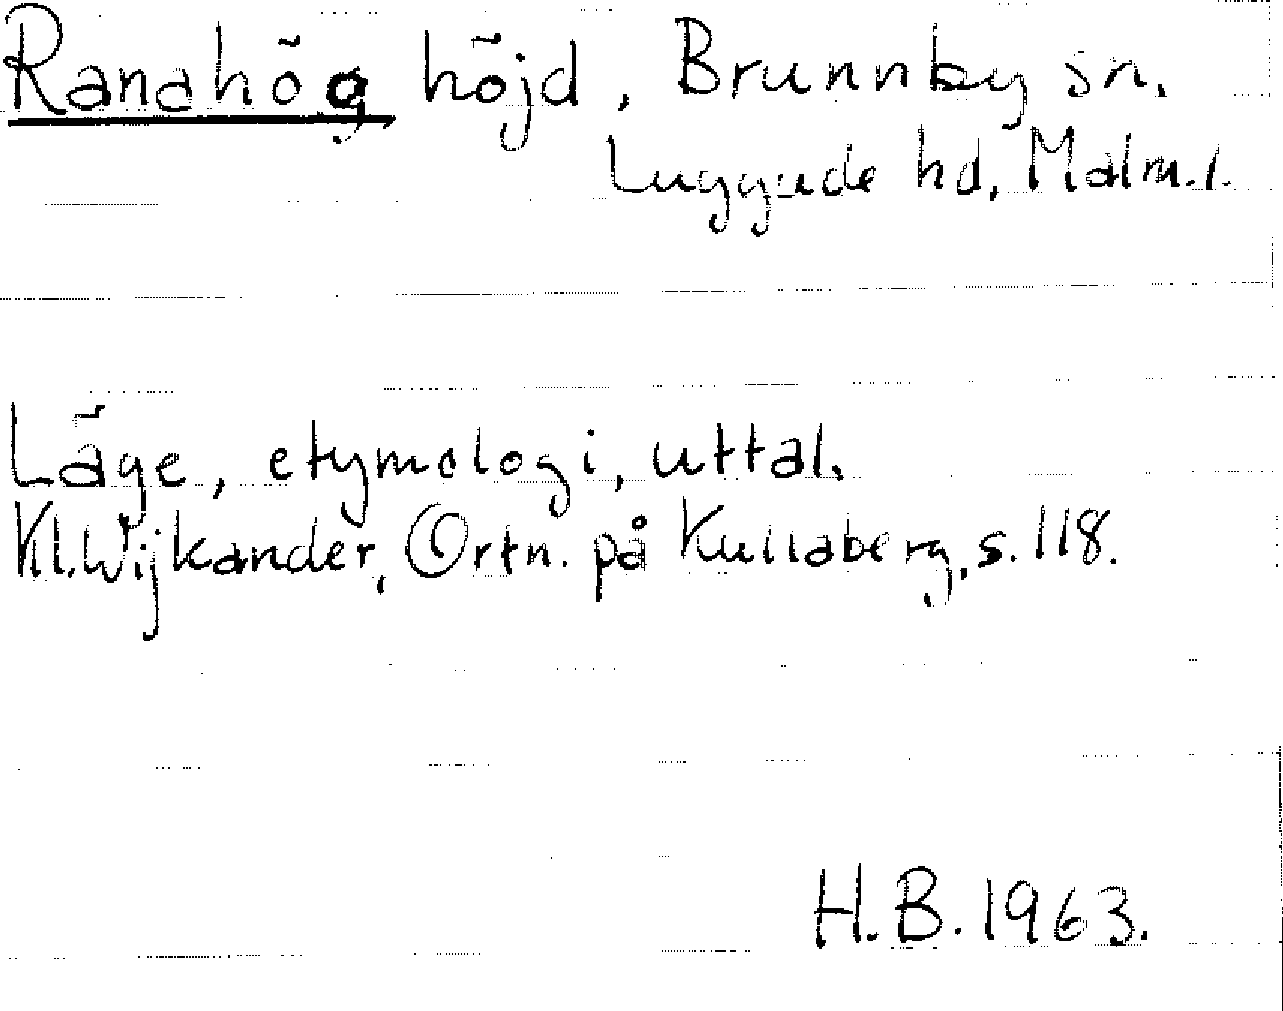 Ranahög höjd, Brunnby sn.
Luggude hd, Malm.l.
Läge, etymologi, uttal.
Kl.Wijkander, Ortn. på Kullaberg, s.118.
H.B.1963.